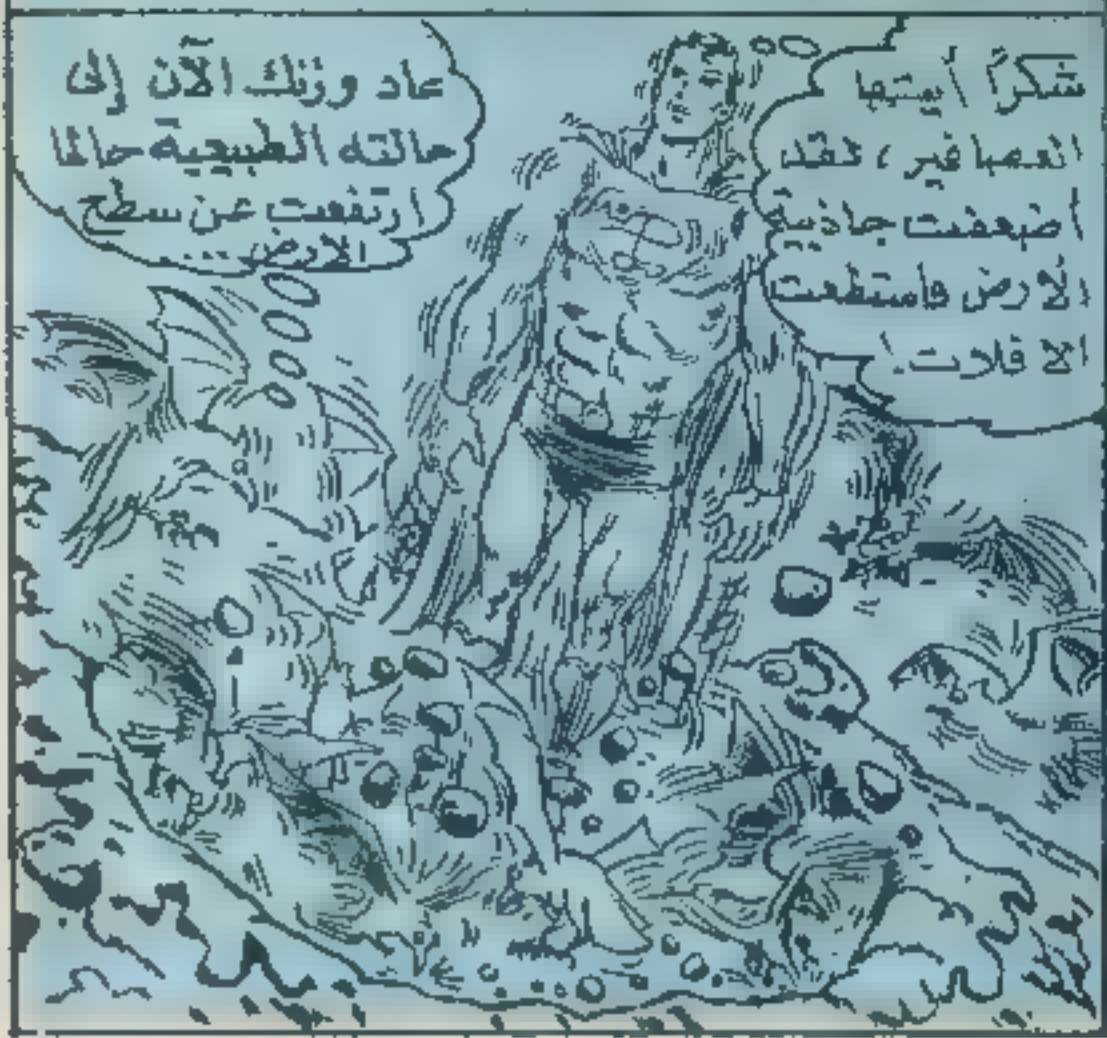 شكراً أيتها
العصافير، لقد
أضعفت جاذبية
الأرض فاستطعت
الافلات!
عاد وزنك الآن إلى
حالته الطبيعية حالما
ارتفعت عن سطح
الارض....